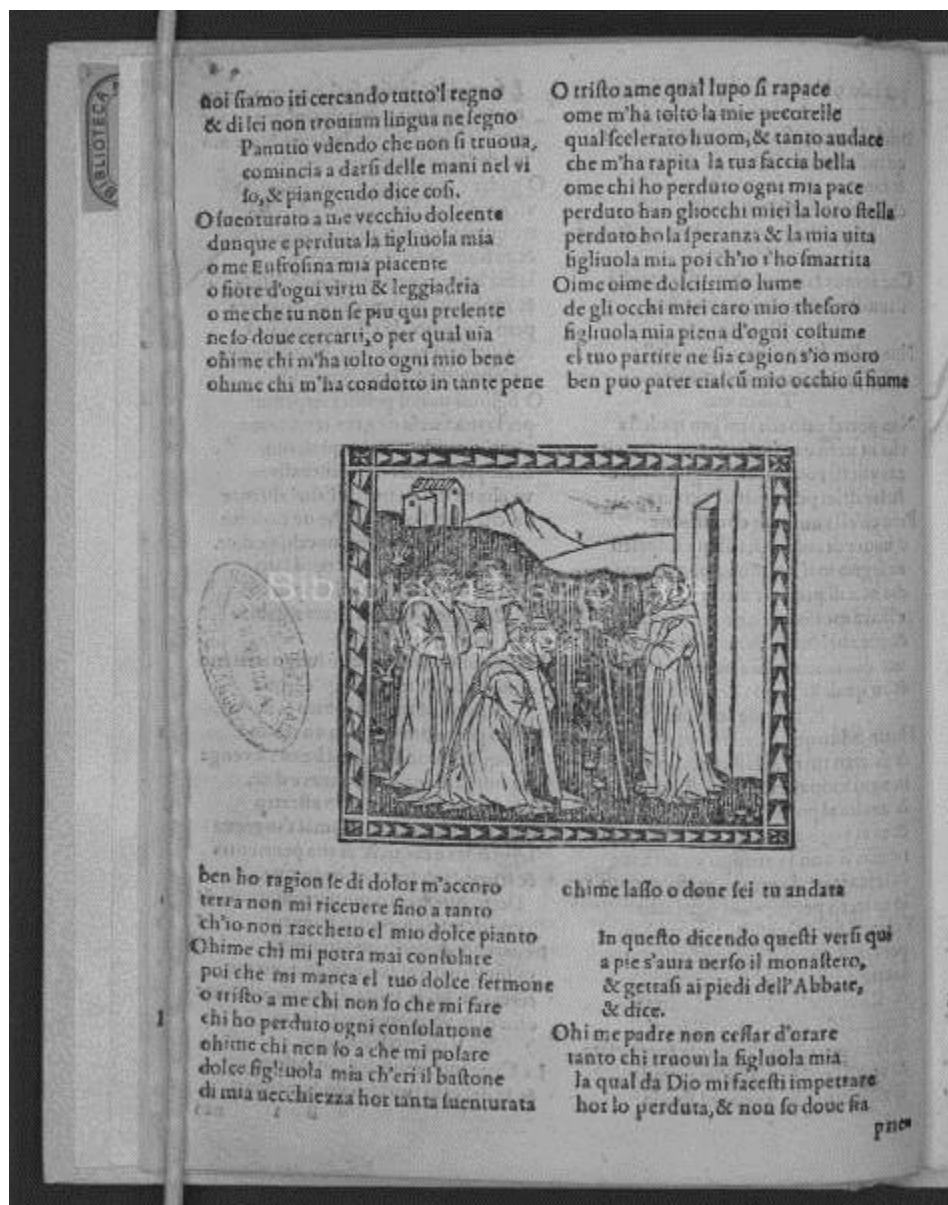 noi siamo iti cercando tutto'l regno
& di lei non trouiam lingua ne segno
Panutio vdendo che non si truoua,
comincia a darsi delle mani nel vi
so, & piangendo dice cosi.
O suenturato a me vecchio dolcente
dunque e perduta la figliuola mia
o me Eufrosina mia piacente
o fiore d'ogni virtu & leggiadria
o me che tu non se piu qui presente
ne so doue cercarti, o per qual uia
ohime chi m'ha tolto ogni mio bene
ohime chi m'ha condotto in tante pene
O tristo ame qual lupo si rapace
ome m'ha tolto la mie pecorelle
qual scelerato huom, & tanto audace
che m'ha rapita la tua faccia bella
ome chi ho perduto ogni mia pace
perduto han gliocchi miei la loro stella
perduto ho la speranza & la mia uita
figliuola mia poi ch'io t'ho smarrita
Oime oime dolcissimo lume
de gli occhi miei caro mio thesoro
figliuola mia piena d'ogni costume
el tuo partire ne sia cagion s'io moro
ben puo parer ciascũ mio occhio ũ fiume
Biblioteca Nacional
ben ho ragion se di dolor m'accoro
terra non mi riceuere sino a tanto
ch'io non raccheto el mio dolce pianto
Ohime chi mi potra mai consolare
poi che mi manca el tuo dolce sermone
o tristo a me chi non so che mi fare
chi ho perduto ogni consolatione
ohime chi non so a che mi posare
dolce figliuola mia ch'eri il bastone
di mia uecchiezza hor tanta suenturata
ohime lasso o doue sei tu andata
In questo dicendo questi versi qui
a pie s'aura uerso il monastero,
& gettasi ai piedi dell'Abbate,
& dice.
Ohi me padre non cessar d'orare
tanto chi truoui la figluola mia
la qual da Dio mi facesti impetrare
hor lo perduta, & non so doue sia
BIBLIOTECA